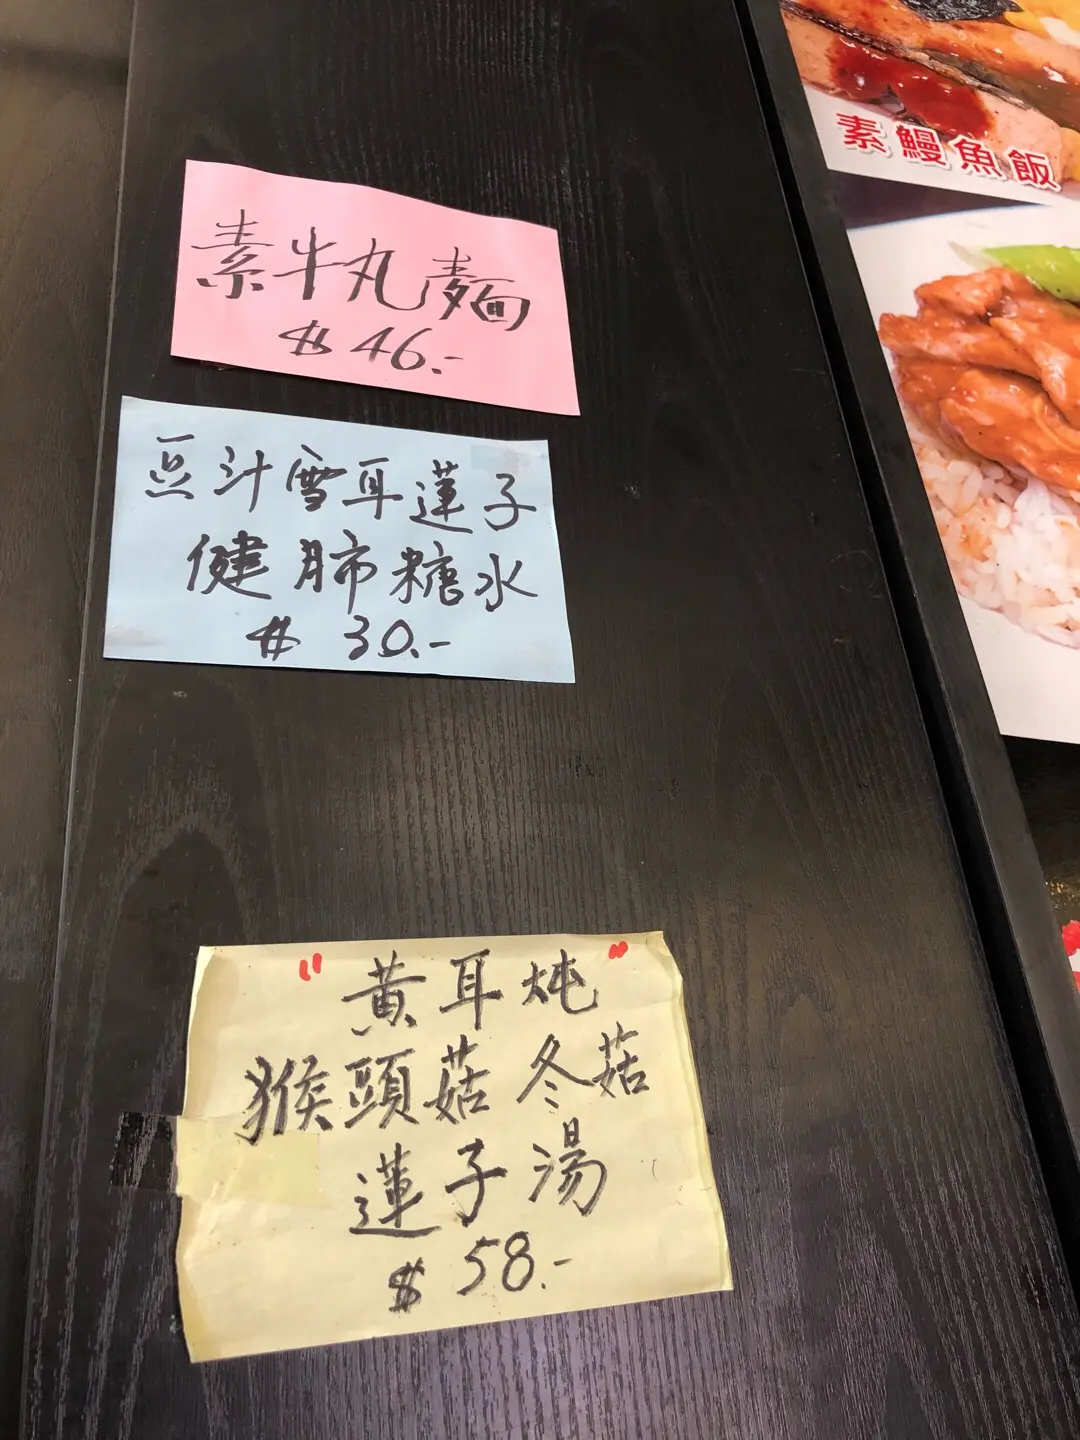 素鰻魚飯
素牛丸麵
$46.-
豆汁雪耳蓮子
健肺糖水
$30.-
"黃耳炖"
猴頭菇冬菇
蓮子湯
$58.-